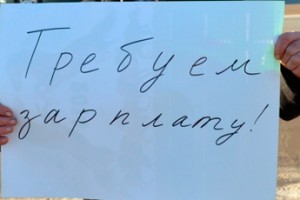 Требуем
зарплату!